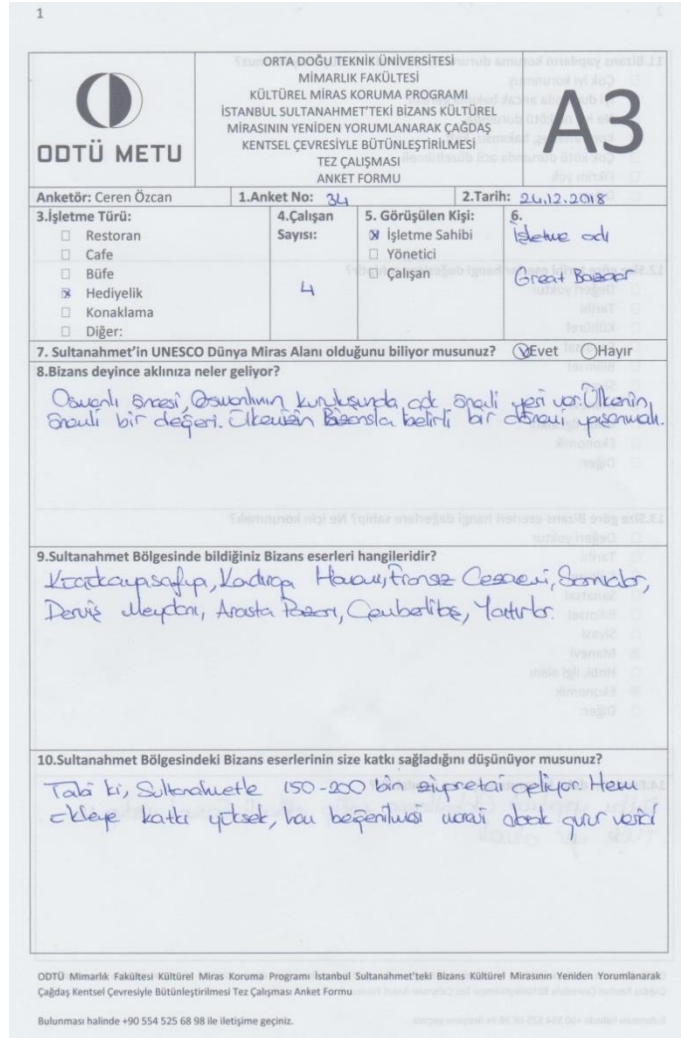 1
ODTÜ METU
ORTA DOĞU TEKNİK ÜNİVERSİTESİ
MİMARLIK FAKÜLTESİ
KÜLTÜREL MİRAS KORUMA PROGRAMI
İSTANBUL SULTANAHMET'TEKİ BİZANS KÜLTÜREL
MİRASININ YENİDEN YORUMLANARAK ÇAĞDAŞ
KENTSEL ÇEVRESİYLE BÜTÜNLEŞTİRİLMESİ
TEZ ÇALIŞMASI
ANKET FORMU
A3
Anketör: Ceren Özcan 1.Anket No: 34 2.Tarih: 24.12.2018
3.İşletme Türü:
Restoran
Cafe
Büfe
Hediyelik
Konaklama
Diğer:
4.Çalışan
Sayısı:
4
5. Görüşülen Kişi:
İşletme Sahibi
Yönetici
Çalışan
6.
İşletme adı
Great Bazaar
7. Sultanahmet'in UNESCO Dünya Miras Alanı olduğunu biliyor musunuz? Evet Hayır
8.Bizans deyince aklınıza neler geliyor?
Osmanlı öncesi, Osmanlının kuruluşunda çok önemli yeri var. Ülkenin
önemli bir değeri. Ülkemizin Bizansla belirli bir dönemi yaşanmalı.
9.Sultanahmet Bölgesinde bildiğiniz Bizans eserleri hangileridir?
Küçükayasofya, Kadırga Hamamı, Fransız Cezaevi, Sarnıçlar,
Derviş Meydanı, Arasta Pazarı, Çemberlitaş, Yatırlar.
10.Sultanahmet Bölgesindeki Bizans eserlerinin size katkı sağladığını düşünüyor musunuz?
Tabi ki, Sultanahmete 150-200 bin ziyaretçi geliyor. Hem
ülkeye katkı yüksek, hem beğenilmesi manevi olarak gurur verici
ODTÜ Mimarlık Fakültesi Kültürel Miras Koruma Programı İstanbul Sultanahmet'teki Bizans Kültürel Mirasının Yeniden Yorumlanarak
Çağdaş Kentsel Çevresiyle Bütünleştirilmesi Tez Çalışması Anket Formu
Bulunması halinde +90 554 525 68 98 ile iletişime geçiniz.